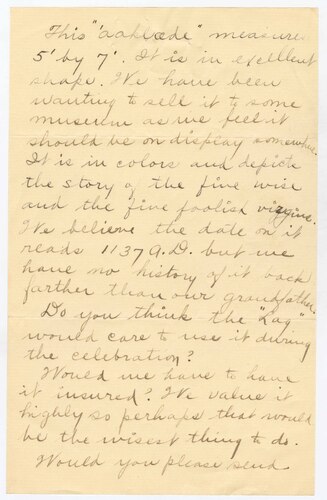 This "aaklaede" measures
5' by 7'. It is in excellent
shape. We have been
wanting to sell it to some
museum as we feel it
should be on display somewhere.
It is in colors and depicts
the story of the five wise
and the five foolish virgins.
We believe the date on it
reads 1137 A.D. but we
have no history of it back
farther than our grandfather.
Do you think the "Lag"
would care to use it during
the celebration?
Would we have to have
it insured? We value it
highly so perhaps that would
be the wisest thing to do.
Would you please send